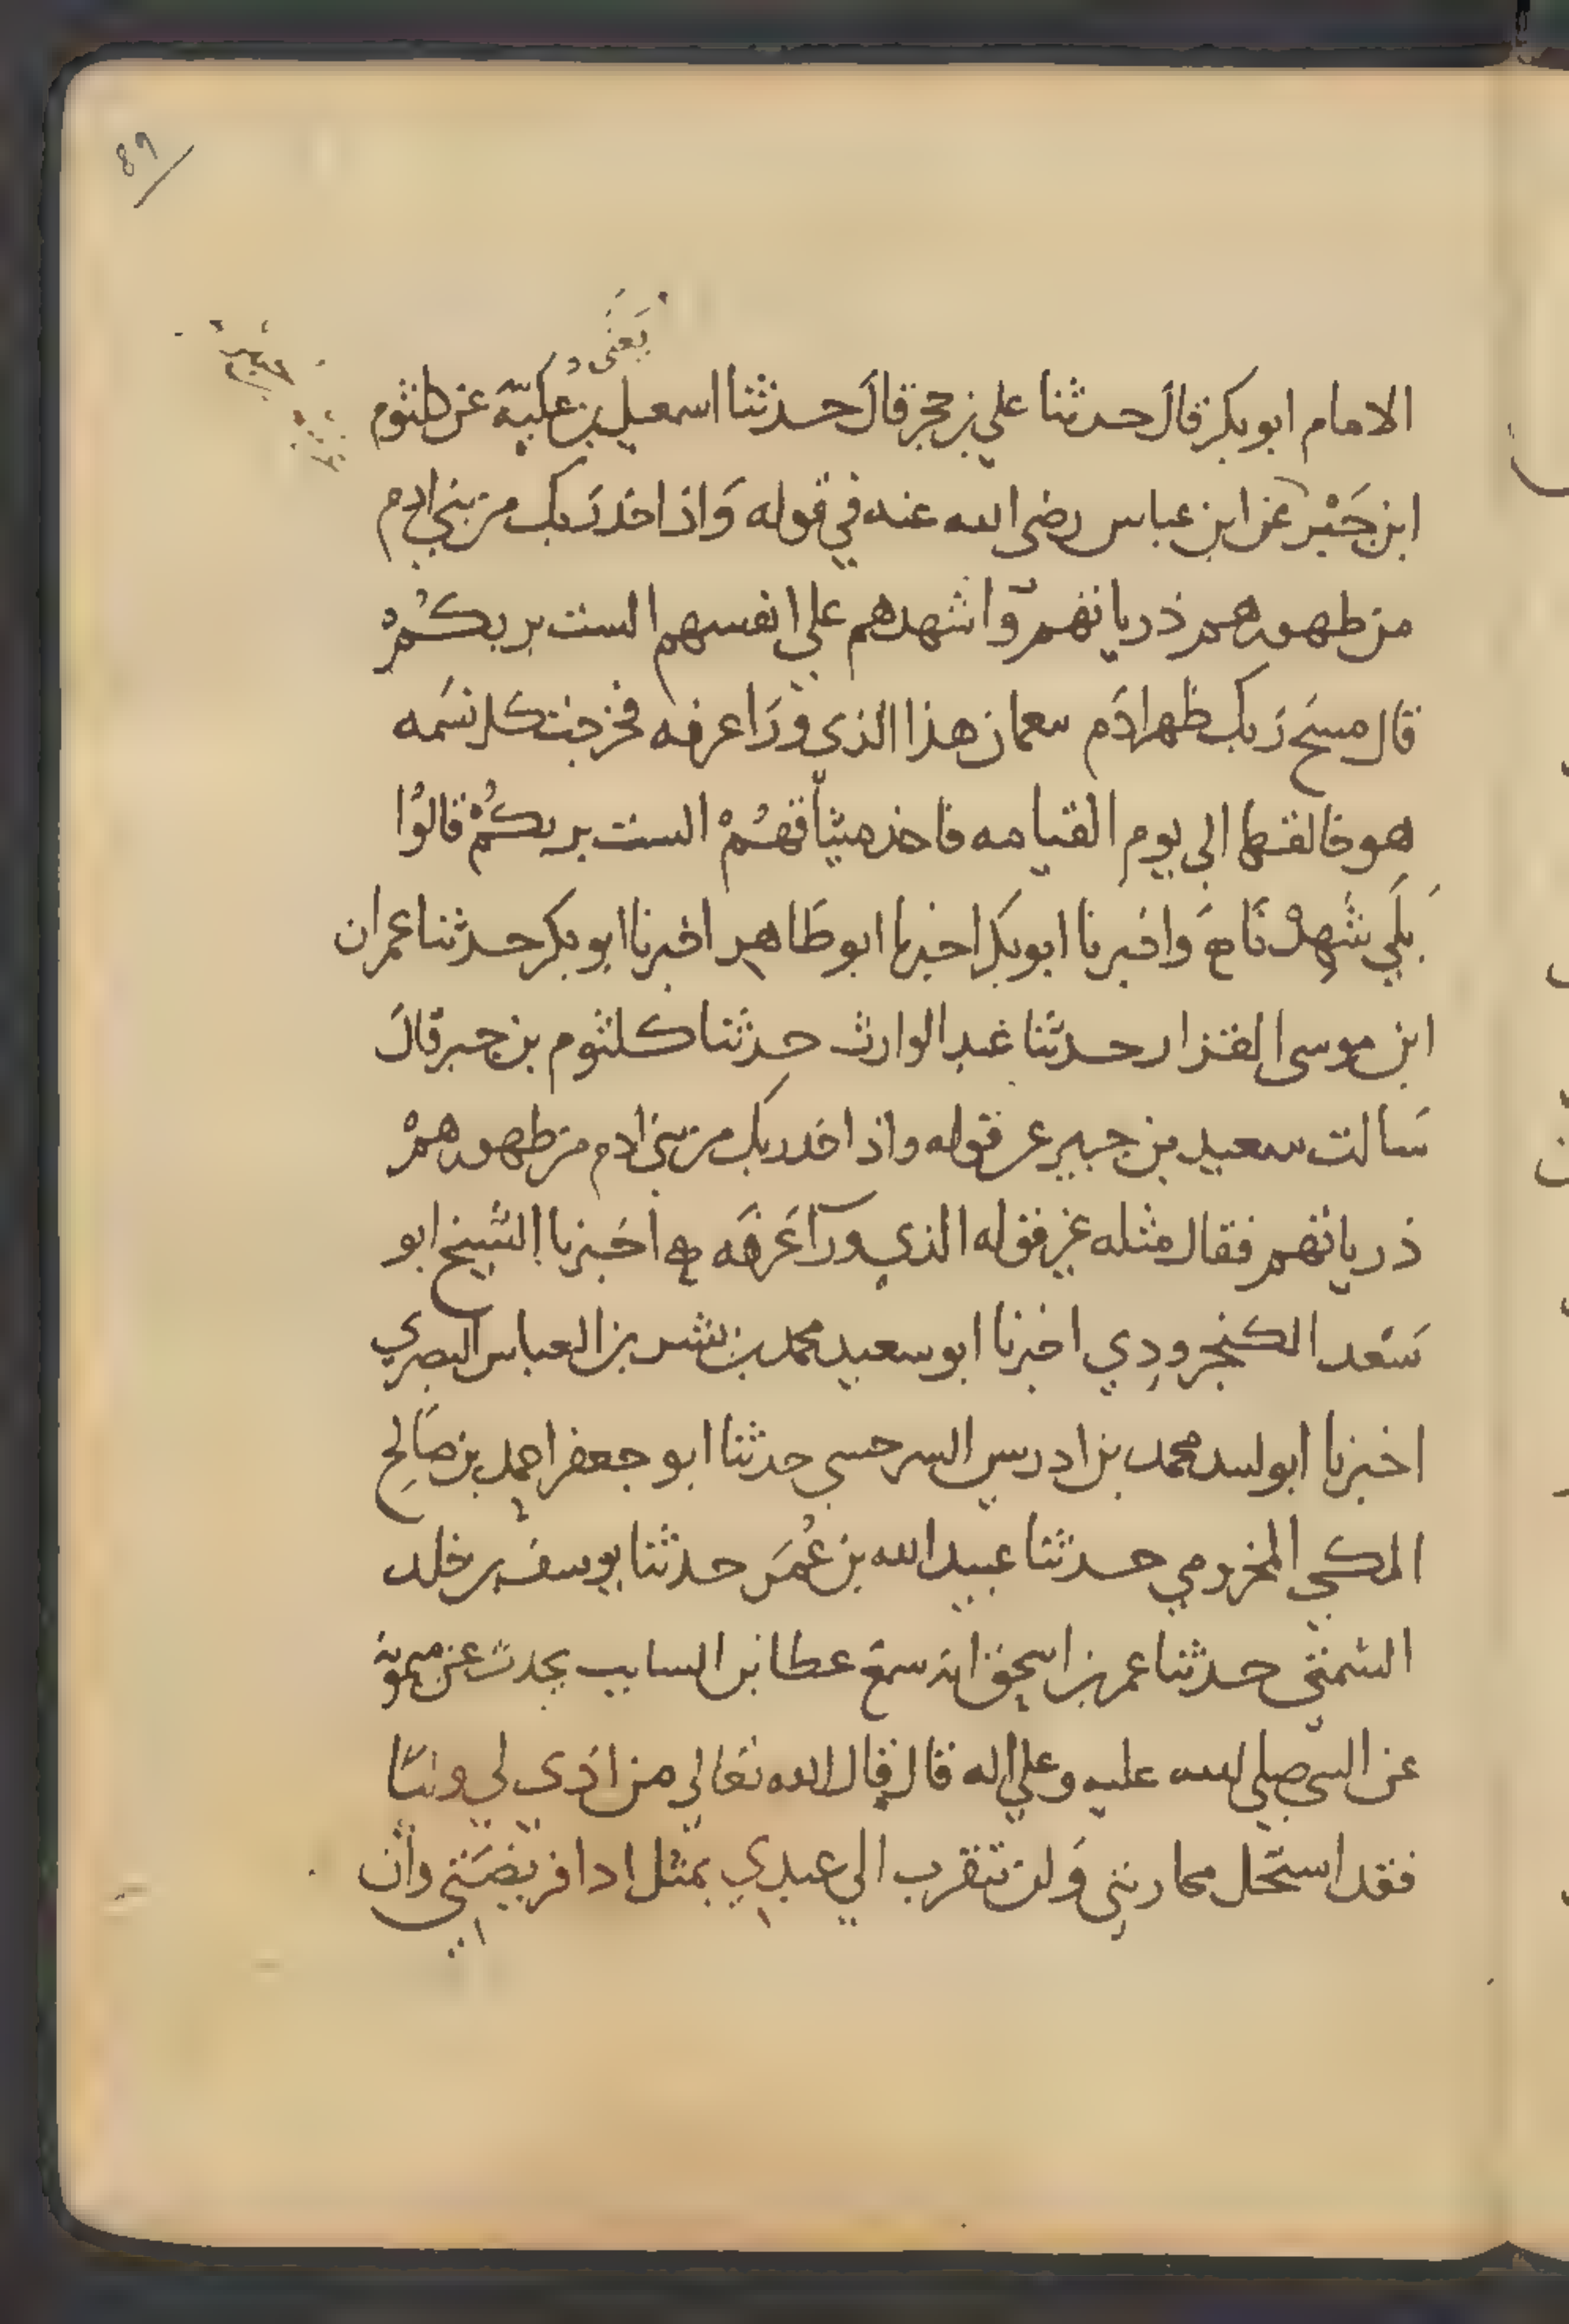 89
يعني
الامام ابو بكر قال حدثنا علي بن حجر قال حدثنا اسمعيل بن علية عن كلثوم
ابن جبر عن ابن عباس رضى الله عنه في قوله وَاذ اخذ رَبك من بني ادم
من ظهورهم ذرياتهم وَاشهدهم علي انفسهم الست بربكُمْ
قال مسح رَبك ظهر ادَم بنعمان هذا الذي ورَا عرفه فخرجت كل نسَمه
هو خالقها الى يوم القيامه فاخذ ميثاقهُمْ الست بربكُمْ قالوُا
بلَي شَهِدْنَا وَاخبرنا ابو بكر اخبرنا ابو طَاهر اخبرنا ابو بكر حدثنا عمران
ابن موسى القزاز حدثنا عبد الوارث حدثنا كلثوم بن جبر قالَ
سَالت سعيد بن جبير عن قوله واذ اخذ ربك من بني ادم من ظهورهمْ
ذرياتهم فقال مثله غير قوله الذي ورآ عَرفَه اخبرنا الشيخ ابو
سَعْد الكنجرودِي اخبرنا ابو سعيد محمد بن بشر بن العباس البصري
اخبرنا ابو لبيد محمد بن ادريس السرخسي حدثنا ابو جعفر احمد بن صَالح
المكي المخزومي حدثنا عبيد الله بن عُمَر حدثنا يوسف بن خلد
السمتي حدثنا عمر بن اسحق انه سمع عطا بن السايب يحدث عن ميمونة
عن النبي صلى الله عليه وعلي اله قال قال الله تعَالي من اذَى لي وليًّا
فقد استحَل محاربتي وَلن يتقرب الي عبدِي بمثل ادا فريضَتي وان